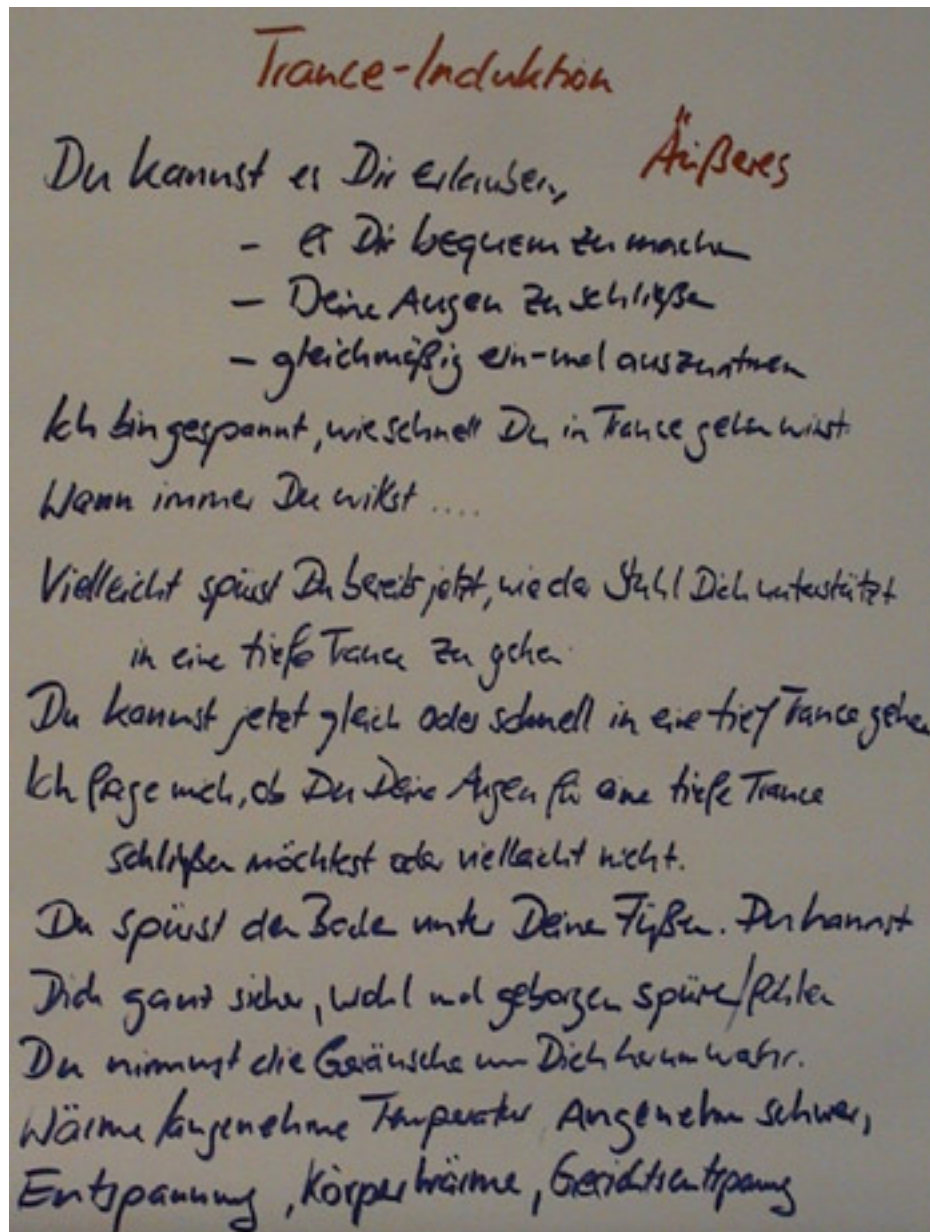 Trance-Induktion
Äußeres
Du kannst es Dir erlauben,
- es Dir bequem zu machen
- Deine Augen zu schließen
- gleichmäßig ein- und auszuatmen
Ich bin gespannt, wie schnell Du in Trance gehen wirst.
Wann immer Du willst ....
Vielleicht spürst Du bereits jetzt, wie der Stuhl Dich unterstützt
in eine tiefe Trance zu gehen.
Du kannst jetzt gleich oder schnell in eine tiefe Trance gehen
Ich frage mich, ob Du Deine Augen für eine tiefe Trance
schließen möchtest oder vielleicht nicht.
Du spürst den Boden unter Deinen Füßen. Du kannst
Dich ganz sicher, wohl und geborgen spüren/fühlen
Du nimmst die Geräusche um Dich herum wahr.
Wärme/angenehme Temperatur, Angenehm schwer,
Entspannung, Körperwärme, Gesichtsentspannung